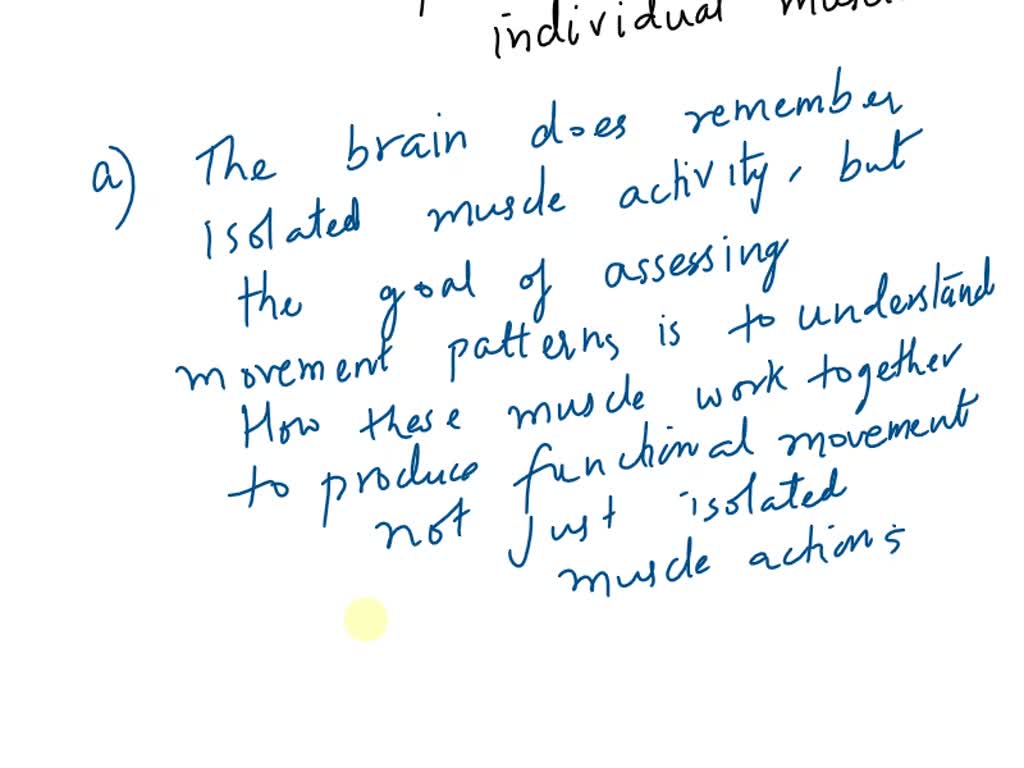 individual
a) The brain does remember
isolated muscle activity, but
the goal of assessing
movement patterns is to understand
How these muscle work together
to produce functional movement
not just isolated
muscle actions